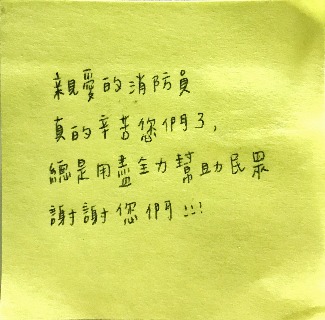 親愛的消防員
真的辛苦您們了,
總是用盡全力幫助民眾
謝謝您們!!!